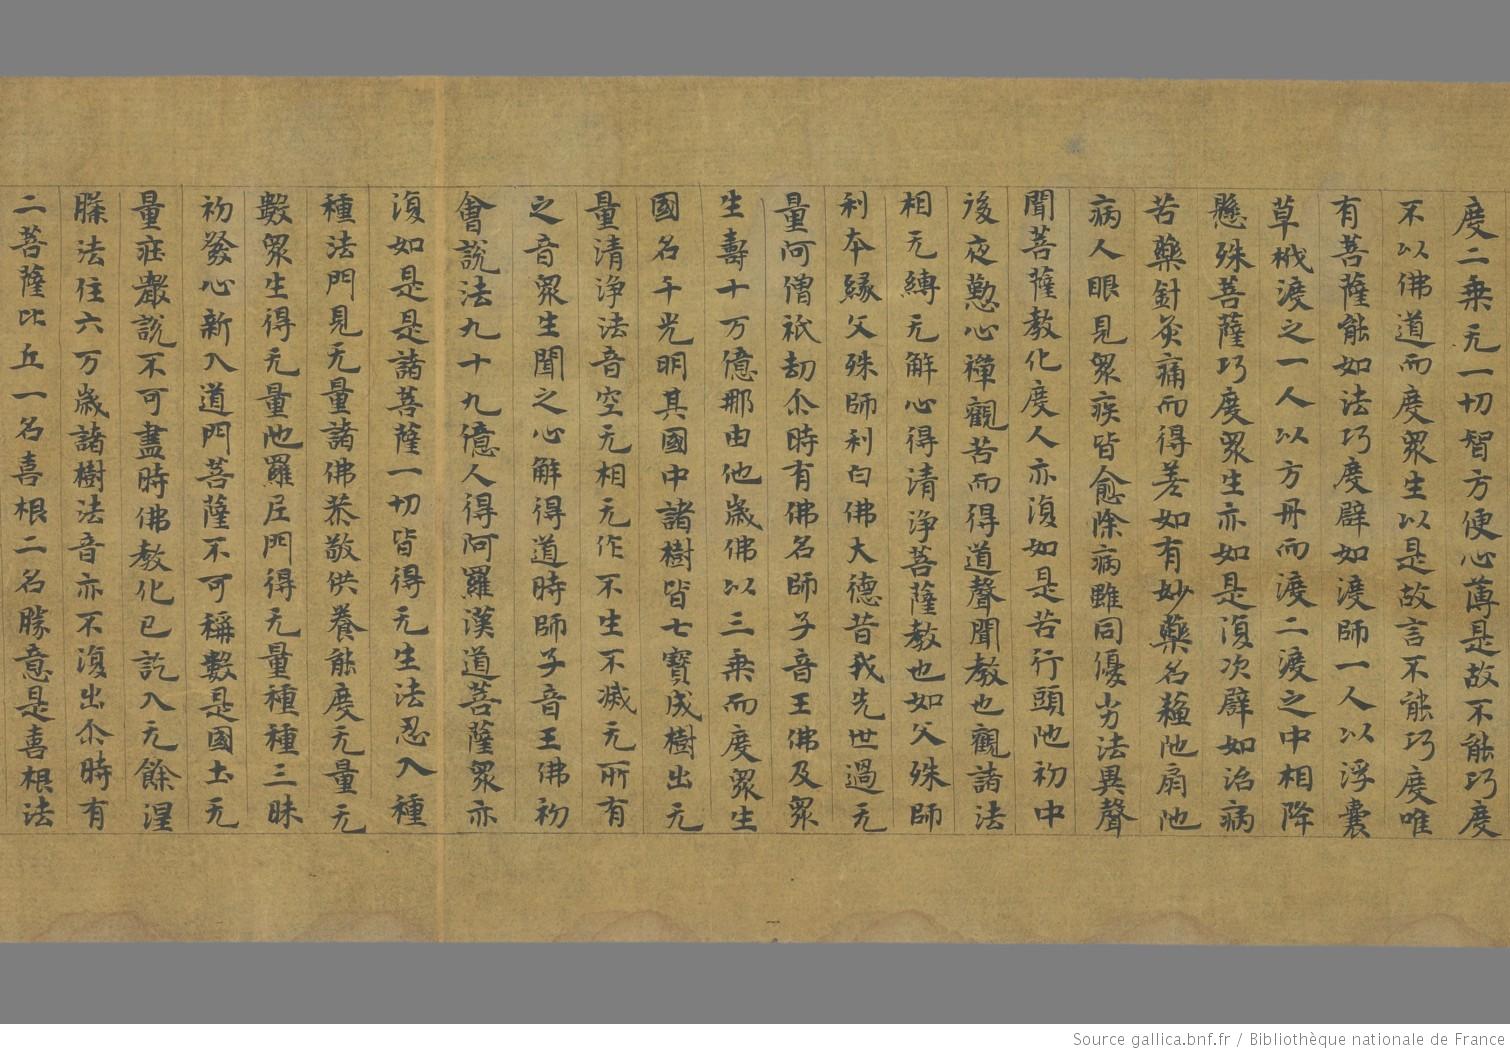 度二乘无一切智方便心薄是故不能巧度
不以佛道而度眾生以是故言不能巧度唯
有菩薩能如法巧度辟如渡師一人以浮囊
草栰渡之一人以方舟而渡二渡之中相降
懸殊菩薩巧度眾生亦如是復次辟如治病
苦藥針灸痛而得差如有妙藥名蘇陁扇陁
病人眼見眾疾皆愈除病雖同優劣法異聲
聞菩薩教化度人亦復如是苦行頭陁初中
後夜懃心禪觀苦而得道聲聞教也觀諸法
相无縛无解心得清淨菩薩教也如父殊師
利本緣父殊師利白佛大德昔我先世過无
量阿僧祇劫尒時有佛名師子音王佛及眾
生壽十万億那由他歲佛以三乘而度眾生
國名千光明其國中諸樹皆七寶成樹出无
量清淨法音空无相无作不生不滅无所有
之音眾生聞之心解得道時師子音王佛初
會說法九十九億人得阿羅漢道菩薩眾亦
復如是是諸菩薩一切皆得无生法忍入種
種法門見无量諸佛恭敬供養能度无量无
數眾生得无量陁羅尼門得无量種種三昧
初發心新入道門菩薩不可稱數是國土无
量莊嚴說不可盡時佛教化已訖入无餘涅
槃法住六万歲諸樹法音亦不復出尒時有
二菩薩比丘一名喜根二名勝意是喜根法
Source gallica.bnf.fr / Bibliothèque nationale de France